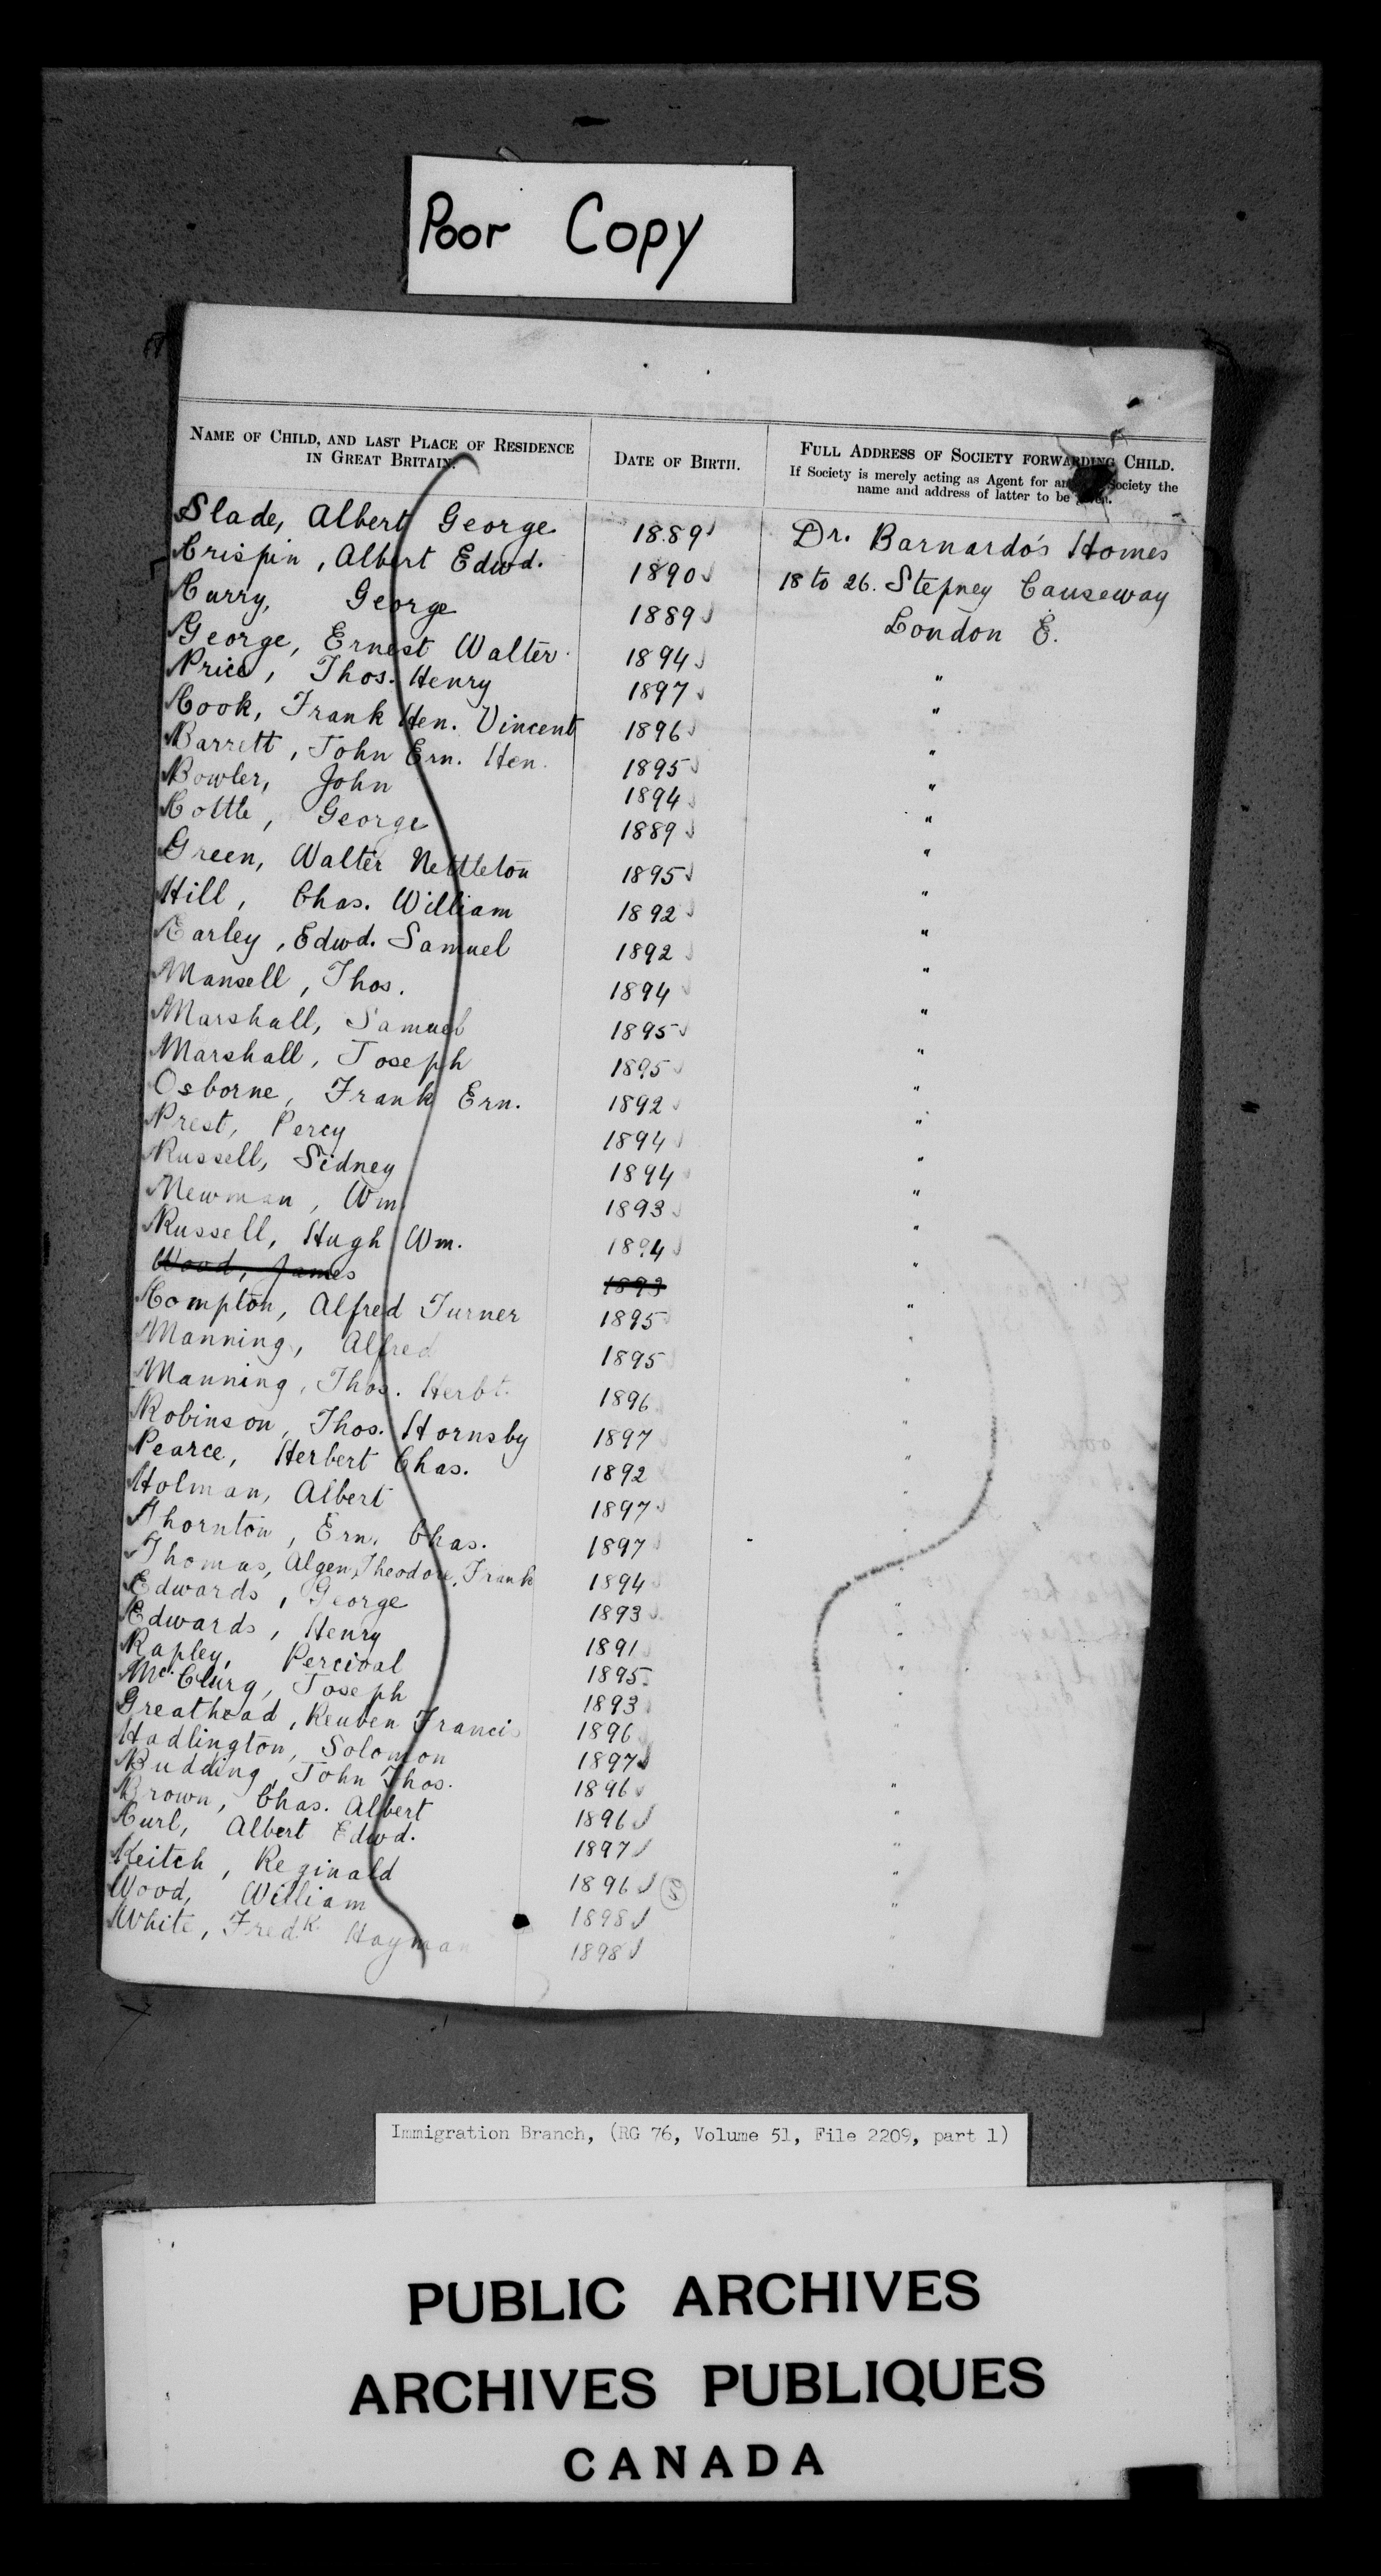 Poor Copy
NAME OF CHILD, AND LAST PLACE OF RESIDENCE IN GREAT BRITAIN.
DATE OF BIRTH.
FULL ADDRESS OF SOCIETY FORWARDING CHILD.
If Society is merely acting as Agent for Society the
name and address of latter to be
Slade, Albert George 1889 Dr. Barnardo's Homes
Crispin, Albert Edwd. 1890 18 to 26. Stepney Causeway
Curry, George 1889 London E.
George, Ernest Walter 1894 "
Price, Thos. Henry 1897 "
Cook, Frank Hen. Vincent 1896 "
Barrett, John Ern. Hen. 1895 "
Bowler, John 1894 "
Cottle, George 1889 "
Green, Walter Nettleton 1895 "
Hill, Chas. William 1892 "
Earley, Edwd. Samuel 1892 "
Mansell, Thos. 1894 "
Marshall, Samuel 1895 "
Marshall, Joseph 1895 "
Osborne, Frank Ern. 1892 "
Prest, Percy 1894 "
Russell, Sidney 1894 "
Newman, Wm. 1893 "
Russell, Hugh Wm. 1894 "
Wood, James 1893 "
Compton, Alfred Turner 1895 "
Manning, Alfred 1895 "
Manning, Thos. Herbt. 1896 "
Robinson, Thos. Hornsby 1897 "
Pearce, Herbert Chas. 1892 "
Holman, Albert 1897 "
Thornton, Ern. Chas. 1897 "
Thomas, Algen, Theodore, Frank 1894 "
Edwards, George 1893 "
Edwards, Henry 1891 "
Rapley, Percival 1895 "
McClurg, Joseph 1893 "
Greathead, Reuben Francis 1896 "
Hadlington, Solomon 1897
Budding, John Thos. 1896 "
Brown, Chas. Albert 1896 "
Curl, Albert Edwd. 1897 "
Keitch, Reginald 1896 "
Wood, William 1898 "
White, Fredk. Hayman 1898 "
Immigration Branch, (RG 76, Volume 51, File 2209, part 1)
PUBLIC ARCHIVES
ARCHIVES PUBLIQUES
CANADA